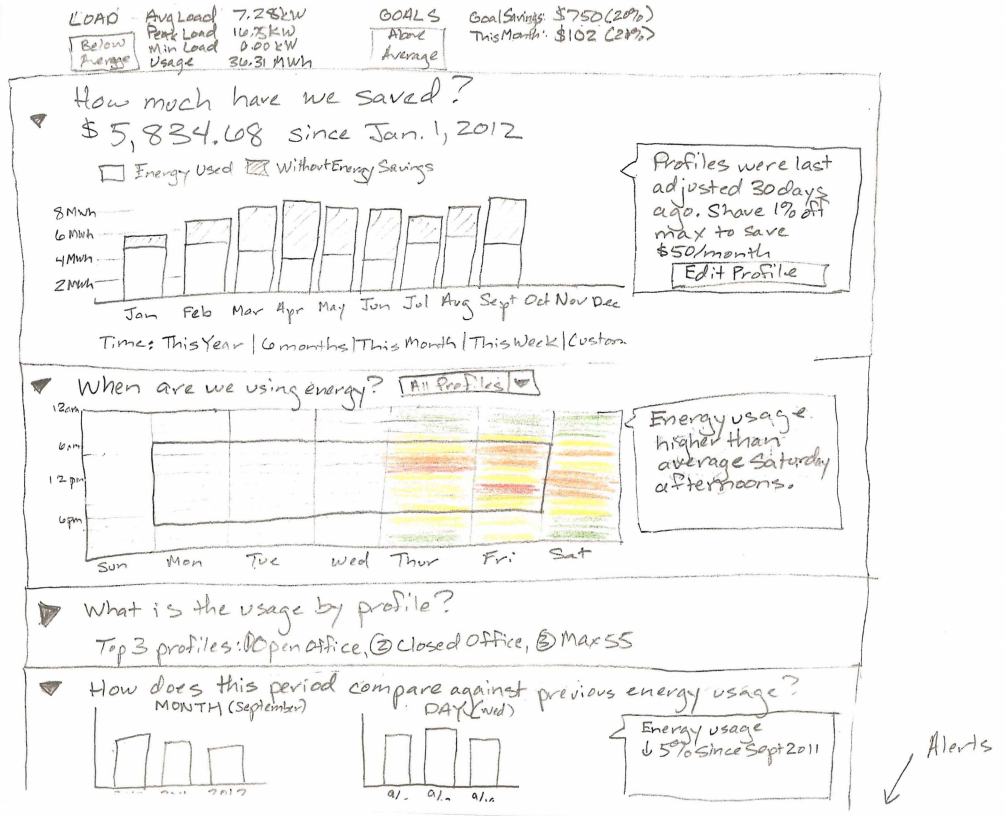 LOAD
Below Average
Avg Load 7.28kW
Peak Load 16.8kW
Min Load 0.00 kW
Usage 36.31 MWh
GOALS
Above Average
Goal Savings: $750 (20%)
This Month: $102 (21%)
How much have we saved?
$5,834.68 since Jan. 1, 2012
Energy Used Without Energy Savings
8 Mwh
6 Mwh
4 Mwh
2 Mwh
Jan Feb Mar Apr May Jun Jul Aug Sept Oct Nov Dec
Time: This Year | 6 months | This Month | This Week | Custom
Profiles were last
adjusted 30 days
ago. Shave 1% off
max to save
$50/month
Edit Profile
When are we using energy? All Profiles
12am
6am
12pm
6pm
Sun Mon Tue Wed Thur Fri Sat
Energy usage
higher than
average Saturday
afternoons.
What is the usage by profile?
Top 3 profiles: ① Open Office, ② Closed Office, ③ Max 55
How does this period compare against previous energy usage?
MONTH (September)
2012
DAY (Wed)
Energy usage
↓ 5% Since Sept 2011
Alerts